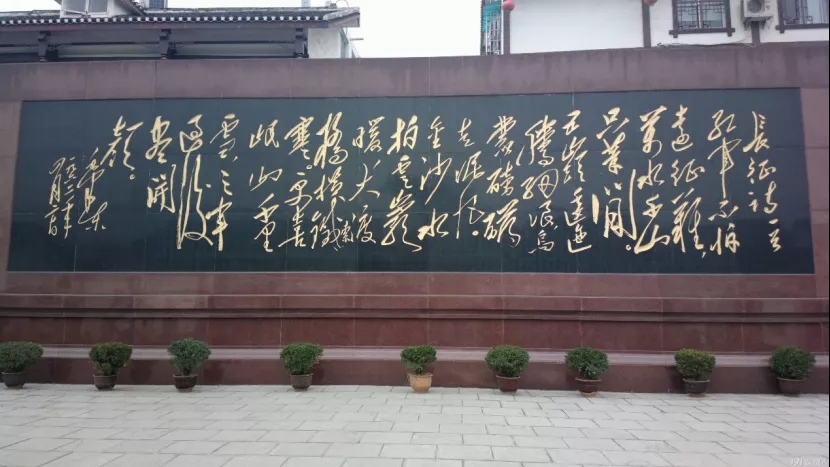 長征詩一首
紅軍不怕
遠征難，
萬水千山
只等閒。
五嶺逶迤
騰細浪烏
蒙磅礴
走泥丸。
金沙水
拍雲崖
暖大渡
橋橫鐵索
寒。更喜
岷山千里
雪三軍
過後
盡開
顏。
毛澤東
一九六二年
四月廿日